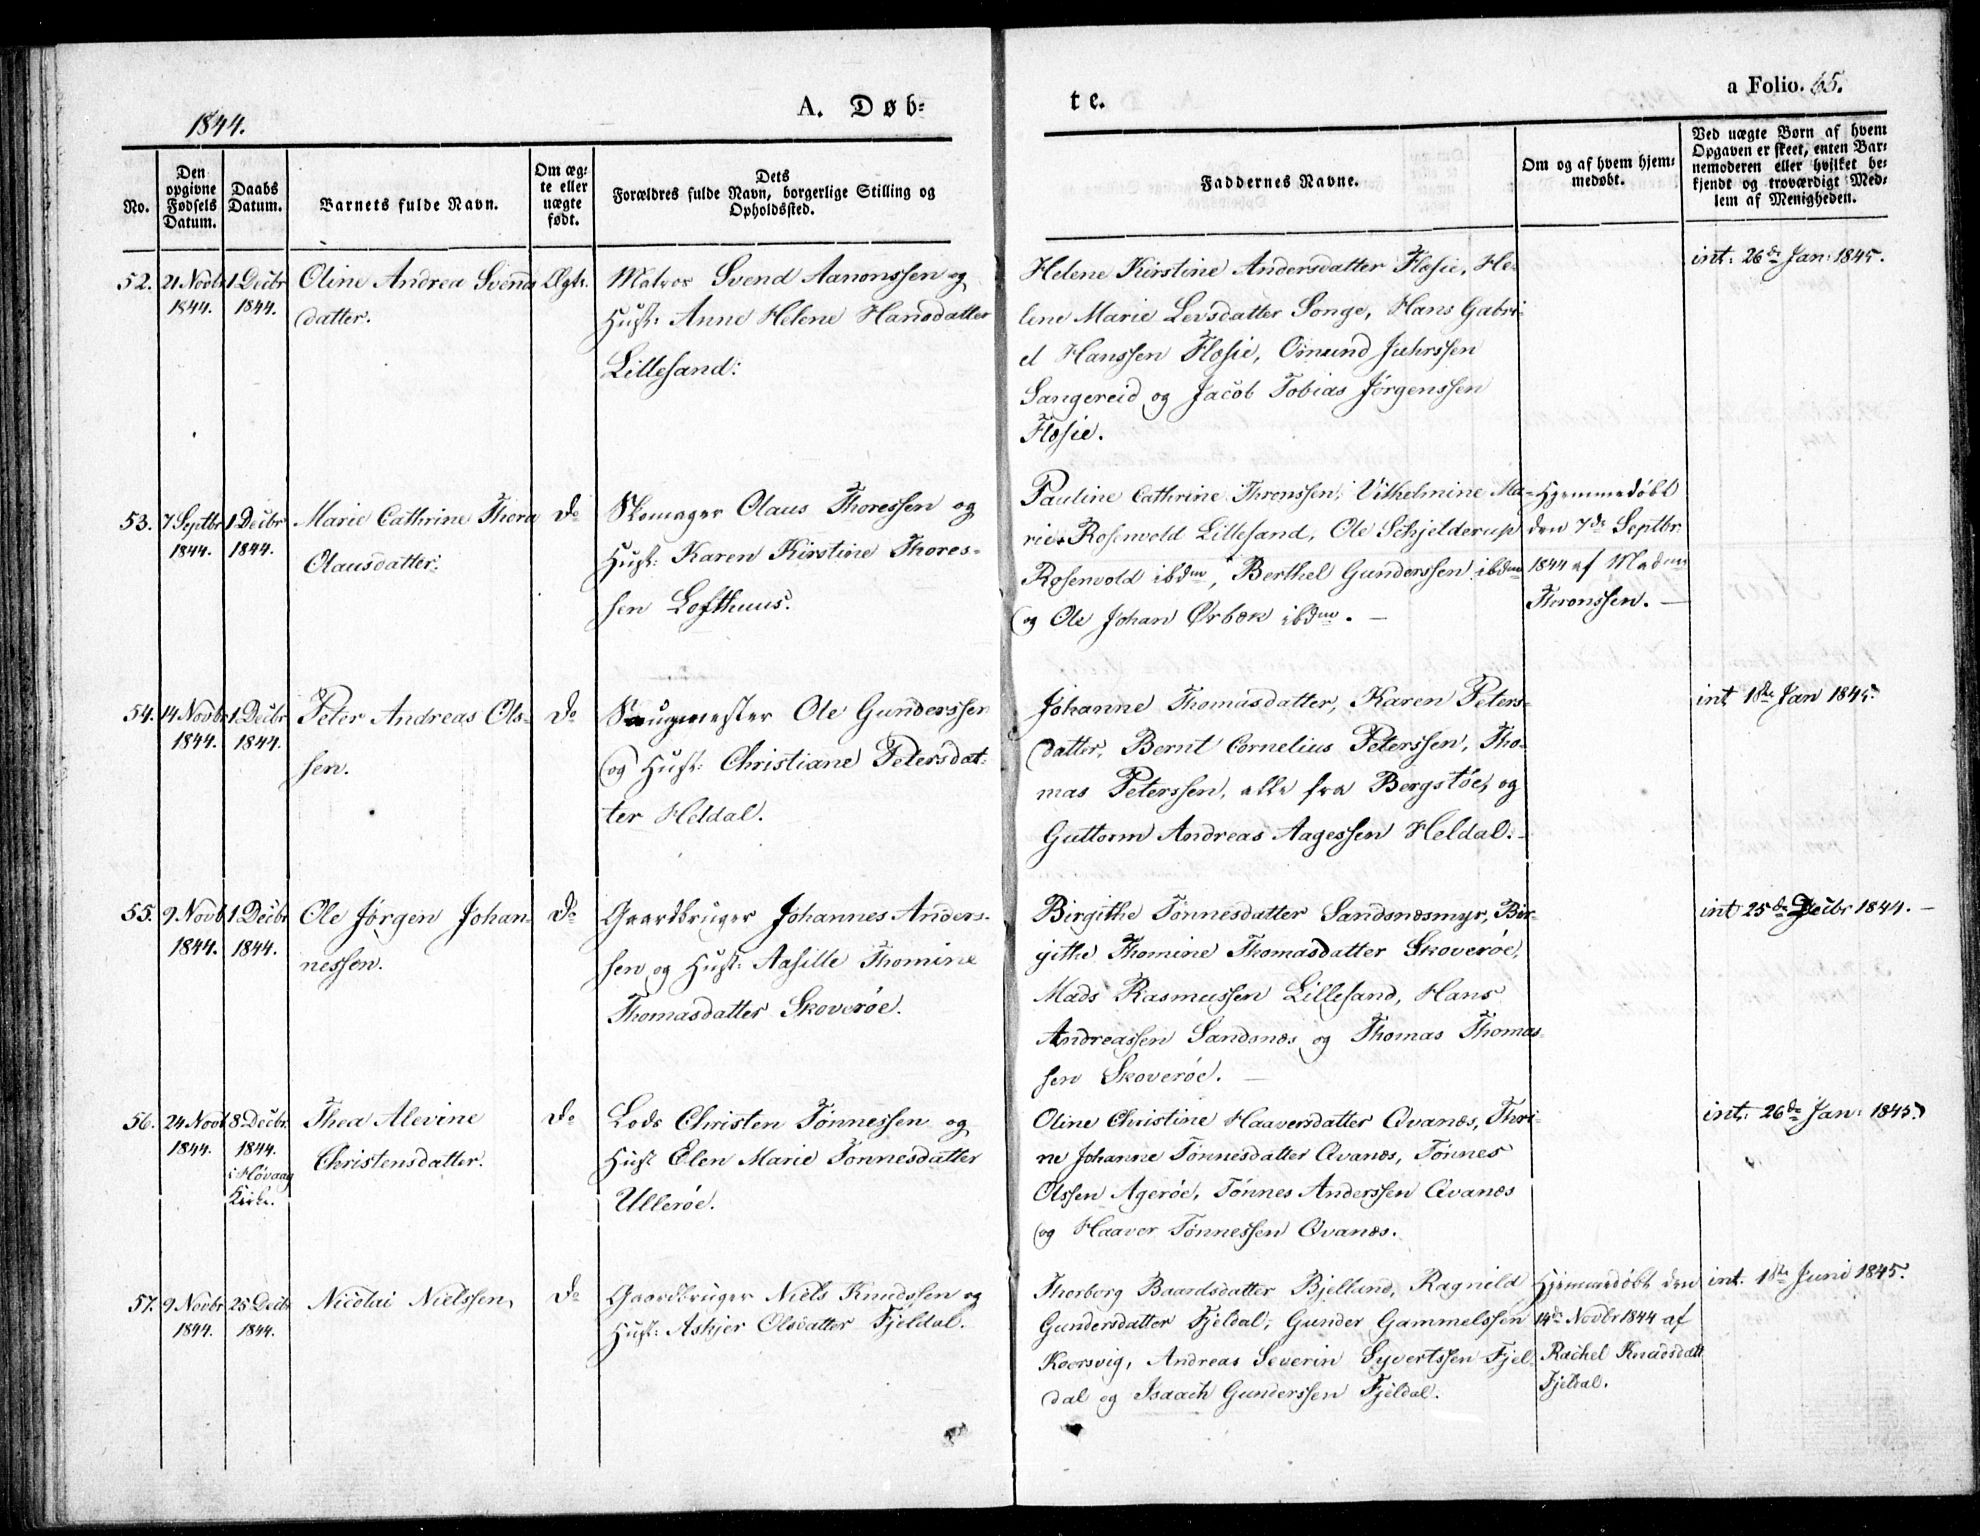 1844.
A. Døb-
te.
a Folio. 65.
No.
Den opgivne Fødsels Datum.
Daabs Datum.
Barnets fulde Navn.
Om æg-te eller uægte født.
Dets Forældres fulde Navn, borgerlige Stilling og Opholdssted.
Faddernes Navne.
Om og af hvem hjem-medøbt.
Ved uægte Børn af hvem Opgaven er skeet, enten Bar-nemoderen eller hvilket be-kjendt og troværdigt Med-lem af Menigheden.
52. 21 Novbr 1844.
1 Decbr 1844.
Oline Andrea Svends
datter.
Ægte.
Matros Svend Aanonssen og
Hust: Anne Helene Hansdatter
Lillesand:
Helene Kirstine Andersdatter Flosie, He-
lene Marie Levsdatter Songe, Hans Gabri-
el Hanssen Flosie, Osmund Juhrssen
Sangereid og Jacob Tobias Jørgenssen
Flosie.
int: 26de Jan: 1845.
53. 7 Septbr 1844.
1 Decbr 1844.
Marie Cathrine Thora
Olausdatter.
do
Skomager Olaus Thoressen og
Hust: Karen Kirstine Thores-
sen Lofthuus.
Pauline Cathrine Thronssen, Vilhelmine Ma-
rie Rosenvold Lillesand, Ole Schjelderup
Rosenvold ibdm, Berthel Gunderssen ibdm
og Ole Johan Ørbæk ibdm. —
Hjemmedøbt
den 7de Septbr
1844 af Madme
Thronssen. —
54. 14 Novbr 1844.
1 Decbr 1844.
Peter Andreas Ols-
sen.
do
Saugmester Ole Gunderssen
og Hust: Christiane Petersdat-
ter Heldal.
Johanne Thomasdatter, Karen Peters-
datter, Bernt Cornelius Peterssen, Tho-
mas Peterssen, alle fra Bergstøe, og
Guttorm Andreas Aagessen Heldal. -
int 1ste Jan 1845.
55. 9 Novb 1844.
1 Decbr 1844.
Ole Jørgen Johan-
nessen.
do
Gaardbruger Johannes Anders-
sen og Hust: Aasille Thomine
Thomasdatter Skoverøe.
Birgithe Tønnesdatter Sandsnæsmyr, Bir-
githe Thomine Thomasdatter Skoverøe,
Mads Rasmussen Lillesand, Hans
Andreassen Sandsnæs og Thomas Thomas-
sen Skoverøe. —
int 25de Decbr 1844. —
56. 24 Novb 1844.
8 Decbr. 1844.
i Høvaag
Kirke.
Thea Alevine
Christensdatter.
do
Lods Christen Tønnessen og
Hust Elen Marie Tønnesdatter
Ullerøe.
Oline Christine Haaversdatter Qvanæs, Thri-
ne Johanne Tønnesdatter Qvanæs, Tønnes
Olssen Agerøe, Tønnes Anderssen Qvanæs
og Haaver Tønnessen Qvanæs.
int: 26de Jan: 1845.
57. 9 Novbr 1844.
25 Decbr 1844.
Nicolai Nielssen,
do
Gaardbruger Niels Knudssen og
Hust: Askjer Olsdatter Fjeldal.
Thorborg Baardsdatter Bjelland, Ragnild
Gundersdatter Fjeldal, Gunder Gammelssen
Koorsvig, Andreas Severin Syvertssen Fjel-
dal og Isaach Gunderssen Fjeldal.
Hjemmedøbt den
14de Novbr 1844 af
Rachel Knudsdatt
Fjeldal.
int. 1ste Juni 1845.